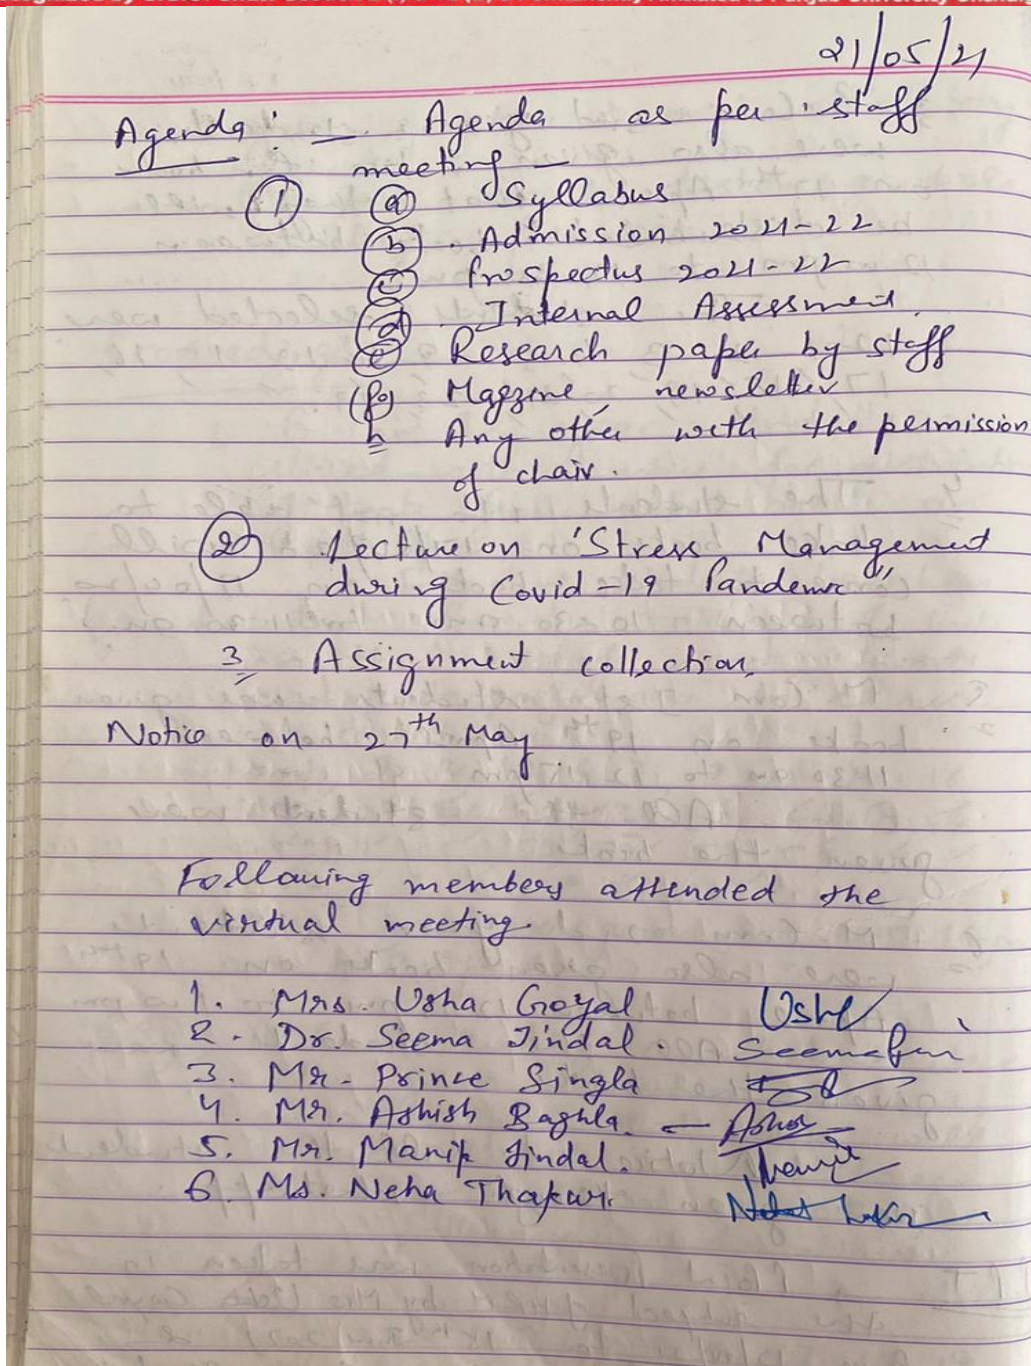 21/05/21
Agenda : - Agenda as per staff
meeting -
① ⓐ Syllabus
ⓑ . Admission 2021-22
ⓒ Prospectus 2021-22
ⓓ . Internal Assessment.
ⓔ Research paper by staff
(fg) Magzine, newsletter
h Any other with the permission
of chair.
② Lecture on 'Stress Management
during Covid-19 Pandemic"
3 Assignment collection.
Notice on 27th May.
Following members attended the
virtual meeting.
1. Mrs. Usha Goyal Usha
2. Dr. Seema Jindal.
3. Mr. Prince Singla
4. Mr. Ashish Baghla. -
5. Mr. Manik Jindal.
6. Ms. Neha Thakur.